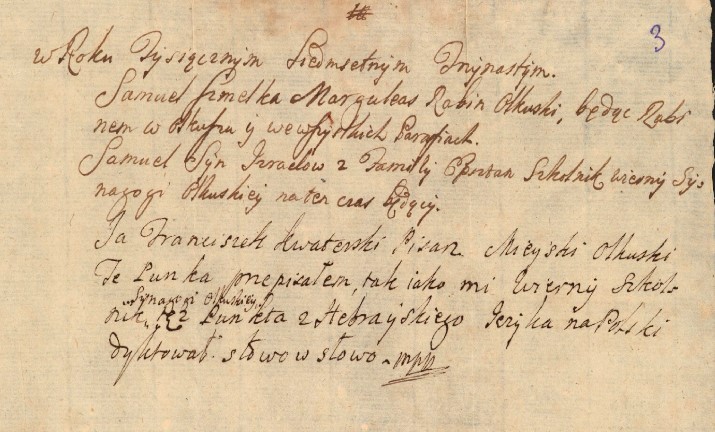 3
w Roku Tysiącznym Siedmsetnym Trzynastym.
Samuel Szmelka Marguleas Rabin Olkuski, będąc Rabi
nem w Olkuszu ÿ we wszystkich Parafiach.
Samuel Syn Izraelów z Familÿ Szkolnik wierny Sy:
nagogi Olkuskieÿ na ten czas będącÿ.
Ja Franciszek Kwaterski Pisarz Mieÿski Olkuski
Te Punkta przepisałem, tak iako mi wiernÿ Szkol:
Synagogi Olkuskieÿ
nik, też Punkta z Hebraÿskiego Języka na Polski
dyktował słowo w słowo mpp